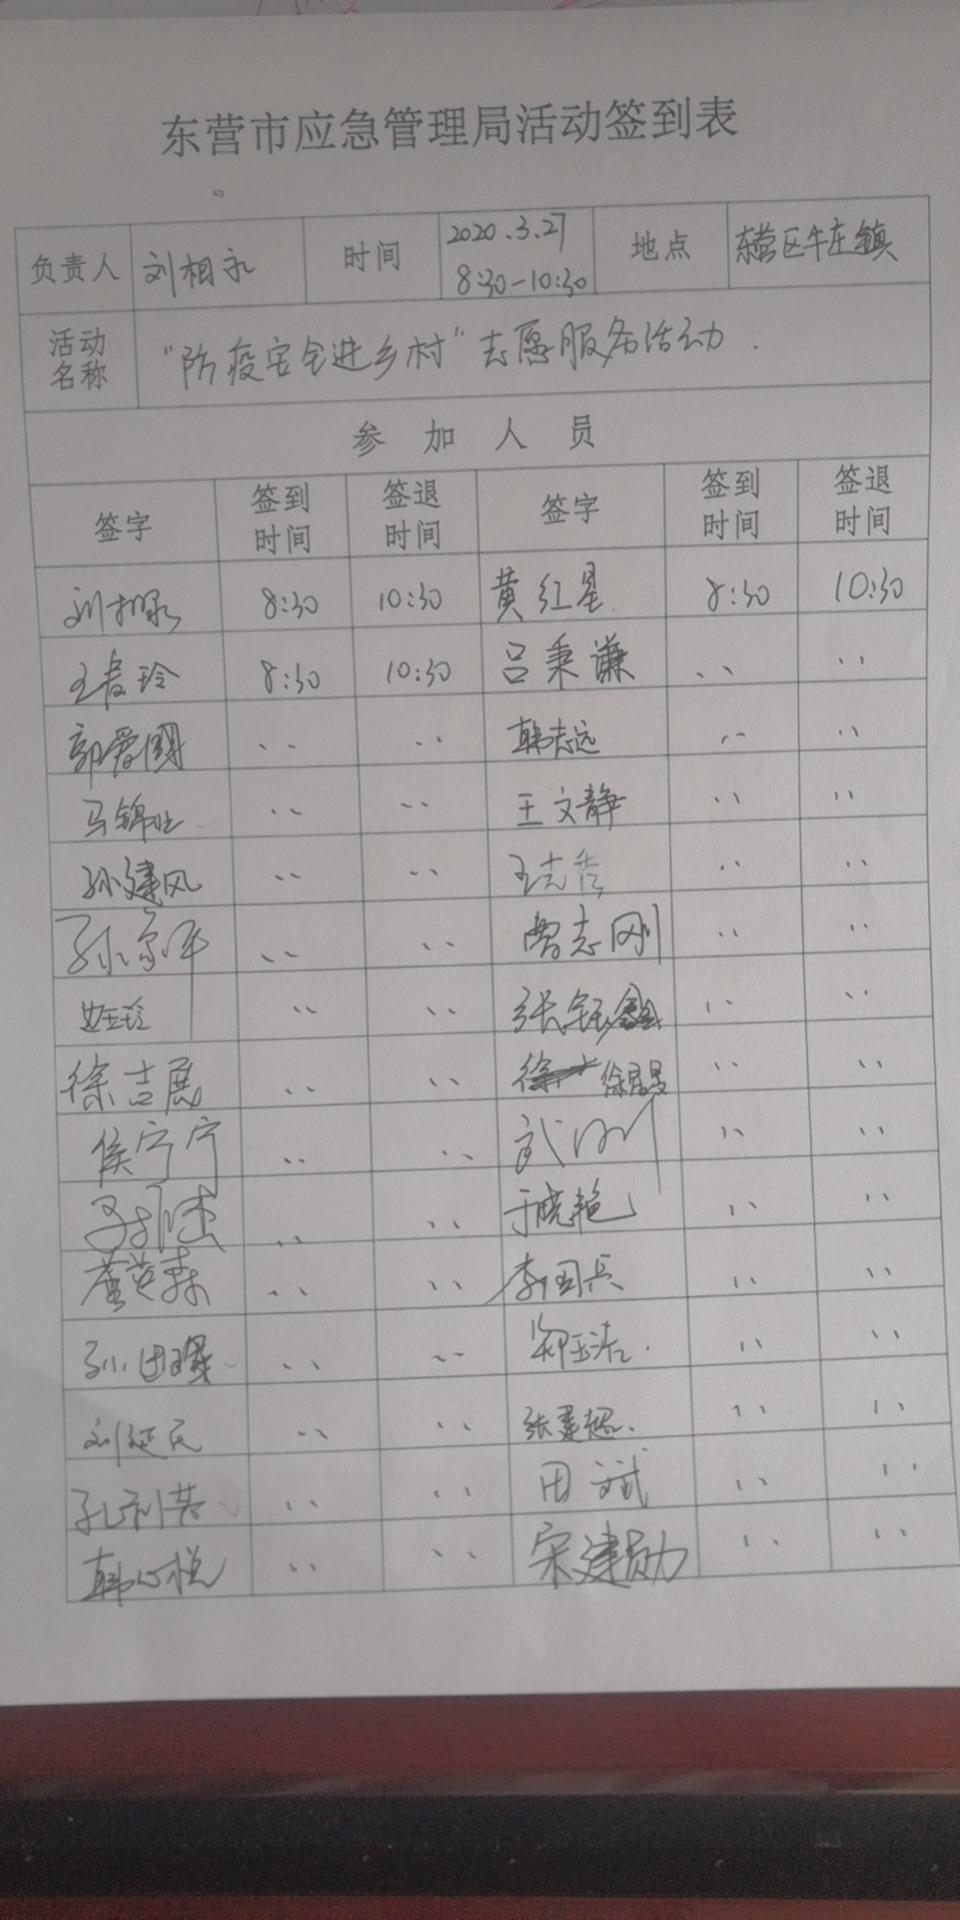 东营市应急管理局活动签到表
负责人 刘相永 时间 2020.3.27 8:30-10:30 地点 东营区牛庄镇
活动名称 "防疫安全进乡村"志愿服务活动.
参加人员
签字 签到时间 签退时间 签字 签到时间 签退时间
刘相永 8:30 10:30 黄红星 8:30 10:30
王春玲 8:30 10:30 吕秉谦 、、 、、
郭爱国 、、 、、 韩志远 、、 、、
马锦 、、 、、 王文静 、、 、、
孙建风 、、 、、 王志 、、 、、
孙 、、 、、 曹志刚 、、 、、
玲 、、 、、 张钰鑫 、、 、、
徐吉展 、、 、、 徐 、、 、、
侯宁宁 、、 、、 武 、、 、、
、、 、、 于晓艳 、、 、、
董 、、 、、 李国兵 、、 、、
孙 、、 、、 郑玉洁. 、、 、、
刘延 、、 、、 张 超. 、、 、、
孔利 、、 、、 田斌 、、 、、
韩心悦 、、 、、 宋建勋 、、 、、